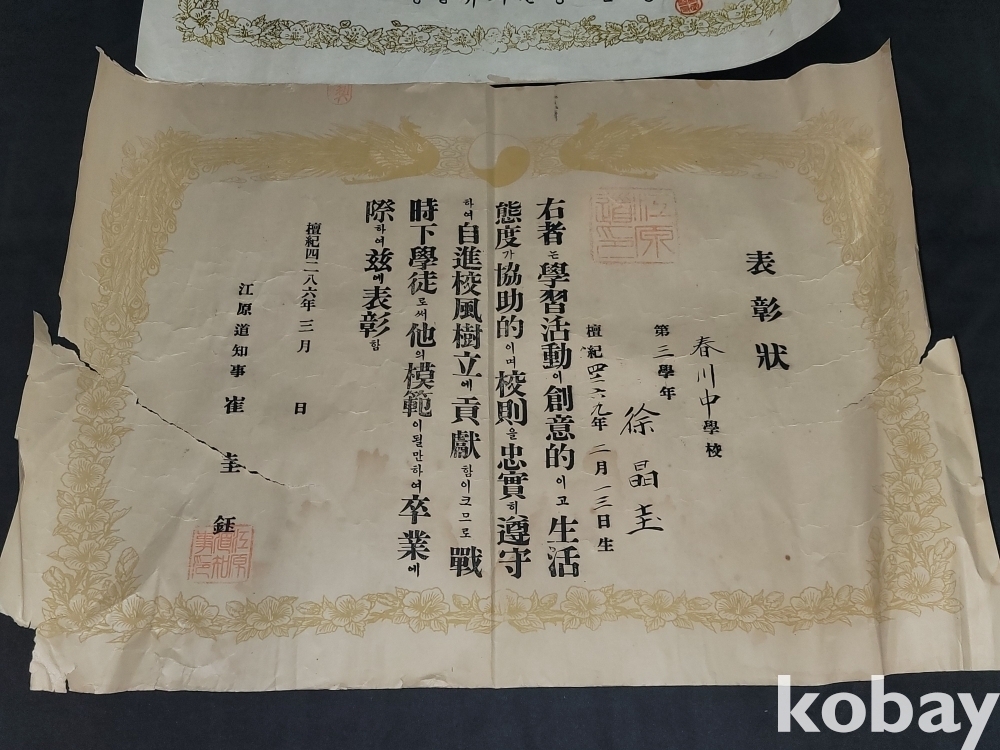 表彰狀
春川中學校
第三學年
徐晶圭
檀紀四二六九年 二月一三日生
右者는學習活動이創意的이고生活
態度가協助的이며校則을忠實히遵守
하여自進校風樹立에貢獻함이크므로戰
時下學徒로써他의模範이될만하여卒業에
際하여玆에表彰함
檀紀四二八六年 三月 日
江原道知事 崔圭鈺
江原道印
江原道知事印
kobay